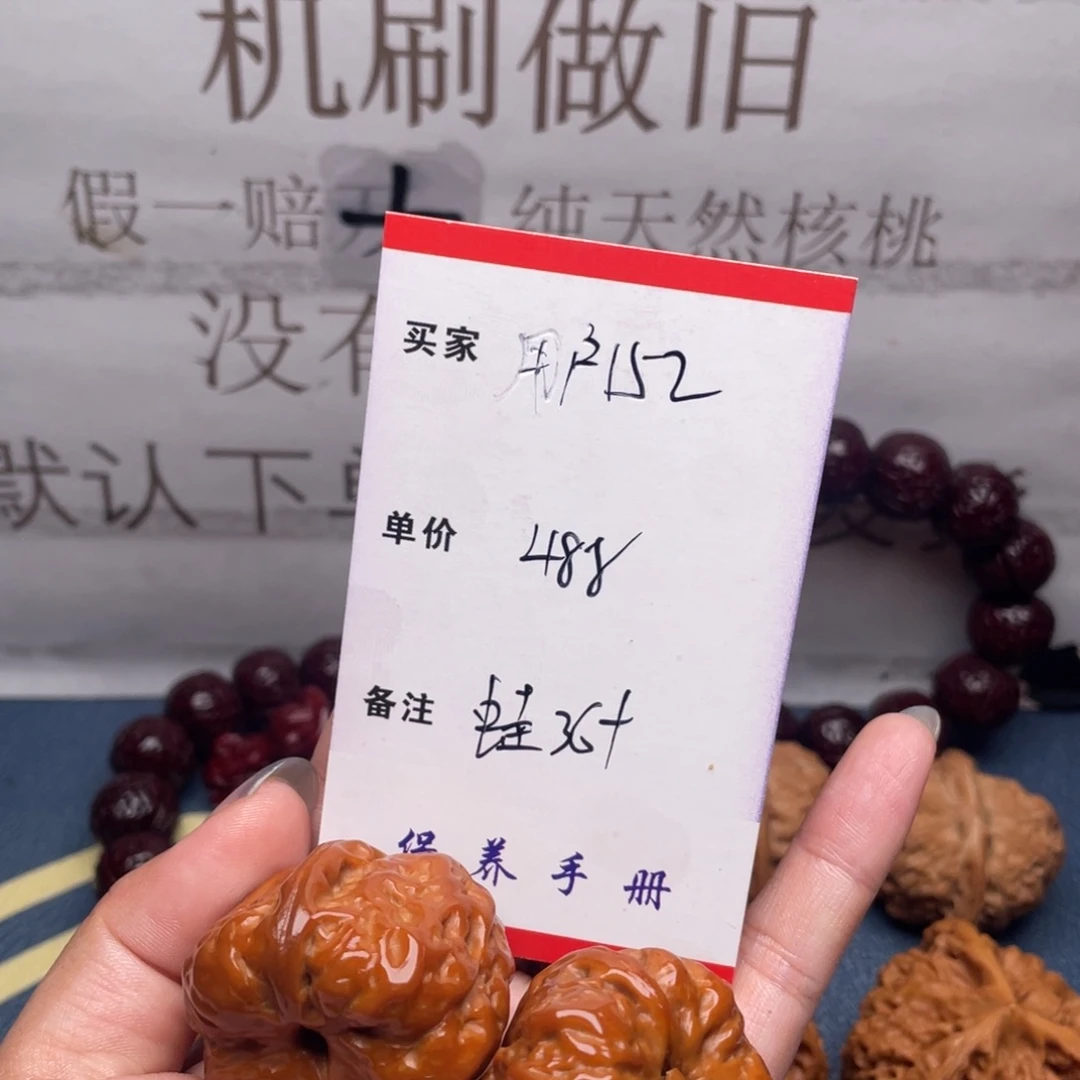 机刷做旧
假一赔十 纯天然核桃
没有
默认下单
买家 用户152
单价 488
备注
保养手册